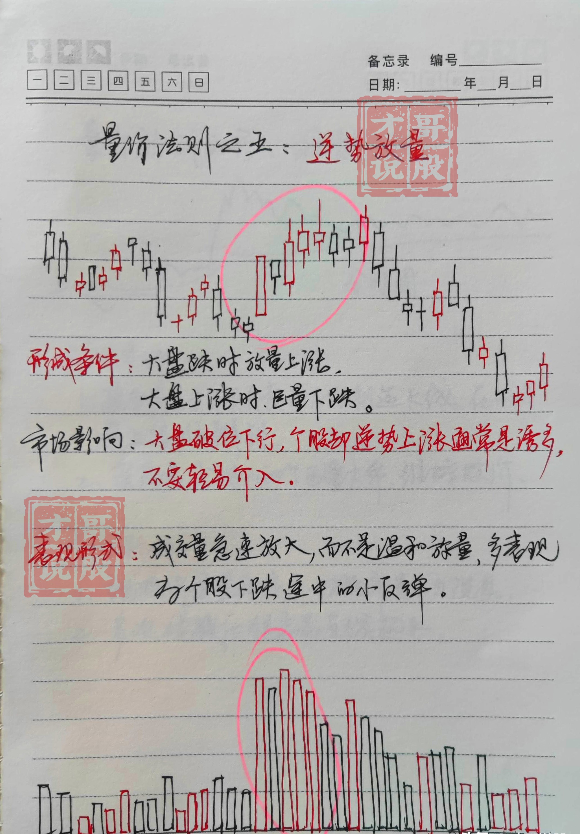 备忘录 编号
一 二 三 四 五 六 日
日期: 年 月 日
量价法则之五：逆势放量
才哥说股
形成条件：大盘跌时放量上涨，
大盘上涨时巨量下跌。
市场影响：大盘破位下行，个股却逆势上涨通常是诱多，
不要轻易介入.
才哥说股
表现形式：成交量急速放大，而不是温和放量，多表现
为个股下跌途中的小反弹。